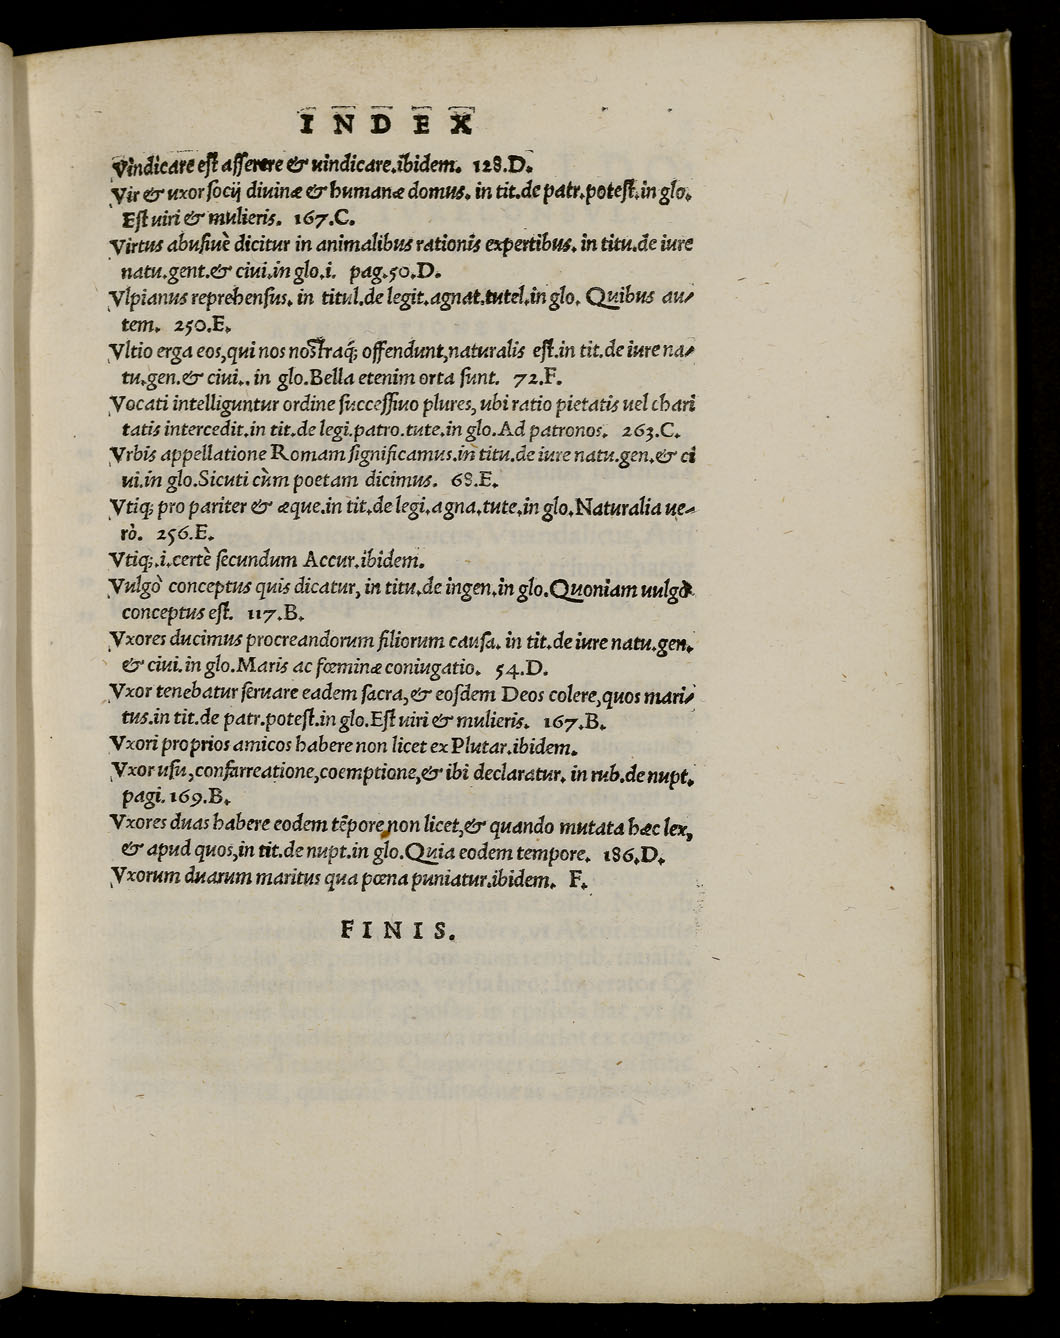 INDEX
Vindicare est asserere & uindicare.ibidem. 128.D.
Vir & uxor socij diuinæ & humanæ domus. in tit.de patr.potest.in glo.
Est uiri & mulieris. 167.C.
Virtus abusiuè dicitur in animalibus rationis expertibus. in titu.de iure
natu.gent.& ciui.in glo.i. pag.50.D.
Vlpianus reprehensus. in titul.de legit.agnat.tutel.in glo. Quibus au-
tem. 250.E.
Vltio erga eos,qui nos nostraq́; offendunt,naturalis est.in tit.de iure na-
tu.gen.& ciui.. in glo.Bella etenim orta sunt. 72.F.
Vocati intelliguntur ordine successiuo plures, ubi ratio pietatis uel chari
tatis intercedit.in tit.de legi.patro.tute.in glo.Ad patronos. 263.C.
Vrbis appellatione Romam significamus.in titu.de iure natu.gen.& ci
ui.in glo.Sicuti cùm poetam dicimus. 68.E.
Vtiq; pro pariter & æque.in tit.de legi.agna.tute.in glo.Naturalia ue-
rò. 256.E.
Vtiq;.i.certè secundum Accur.ibidem.
Vulgò conceptus quis dicatur, in titu.de ingen.in glo.Quoniam uulgò
conceptus est. 117.B.
Vxores ducimus procreandorum filiorum causa. in tit.de iure natu.gen.
& ciui.in glo.Maris ac fœminæ coniugatio. 54.D.
Vxor tenebatur seruare eadem sacra,& eosdem Deos colere,quos mari-
tus.in tit.de patr.potest.in glo.Est uiri & mulieris. 167.B.
Vxori proprios amicos habere non licet ex Plutar.ibidem.
Vxor usu,confarreatione,coemptione,& ibi declaratur. in rub.de nupt.
pagi.169.B.
Vxores duas habere eodem tẽpore non licet,& quando mutata hæc lex,
& apud quos,in tit.de nupt.in glo.Quia eodem tempore. 186.D.
Vxorum duarum maritus qua pœna puniatur.ibidem. F.
FINIS.